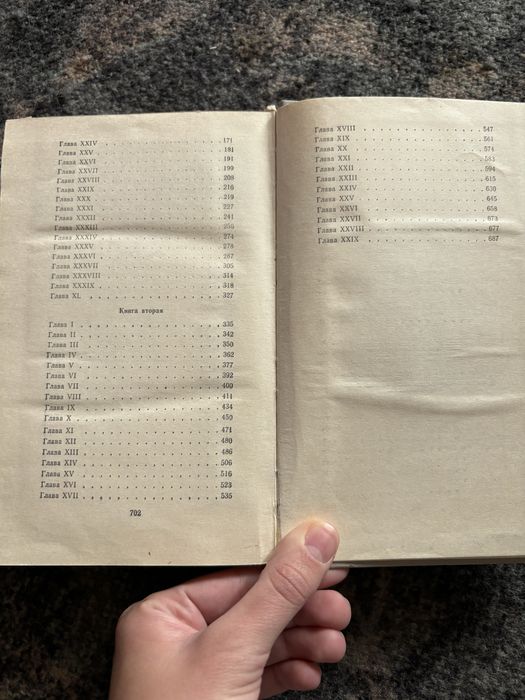 Глава XXIV . . . . . . . . . . . . . 171
Глава XXV . . . . . . . . . . . . . 181
Глава XXVI . . . . . . . . . . . . . 191
Глава XXVII . . . . . . . . . . . . . 199
Глава XXVIII . . . . . . . . . . . . . 208
Глава XXIX . . . . . . . . . . . . . 216
Глава XXX . . . . . . . . . . . . . 219
Глава XXXI . . . . . . . . . . . . . 227
Глава XXXII . . . . . . . . . . . . . 241
Глава XXXIII . . . . . . . . . . . . . 256
Глава XXXIV . . . . . . . . . . . . . 274
Глава XXXV . . . . . . . . . . . . . 278
Глава XXXVI . . . . . . . . . . . . . 287
Глава XXXVII . . . . . . . . . . . . . 305
Глава XXXVIII . . . . . . . . . . . . . 314
Глава XXXIX . . . . . . . . . . . . . 318
Глава XL . . . . . . . . . . . . . 327
Книга вторая
Глава I . . . . . . . . . . . . . 335
Глава II . . . . . . . . . . . . . 342
Глава III . . . . . . . . . . . . . 350
Глава IV . . . . . . . . . . . . . 362
Глава V . . . . . . . . . . . . . 377
Глава VI . . . . . . . . . . . . . 392
Глава VII . . . . . . . . . . . . . 400
Глава VIII . . . . . . . . . . . . . 411
Глава IX . . . . . . . . . . . . . 434
Глава X . . . . . . . . . . . . . 450
Глава XI . . . . . . . . . . . . . 471
Глава XII . . . . . . . . . . . . . 480
Глава XIII . . . . . . . . . . . . . 486
Глава XIV . . . . . . . . . . . . . 506
Глава XV . . . . . . . . . . . . . 516
Глава XVI . . . . . . . . . . . . . 523
Глава XVII . . . . . . . . . . . . . 535
702
Глава XVIII . . . . . . . . . . . . . 547
Глава XIX . . . . . . . . . . . . . 561
Глава XX . . . . . . . . . . . . . 574
Глава XXI . . . . . . . . . . . . . 583
Глава XXII . . . . . . . . . . . . . 594
Глава XXIII . . . . . . . . . . . . . 615
Глава XXIV . . . . . . . . . . . . . 630
Глава XXV . . . . . . . . . . . . . 645
Глава XXVI . . . . . . . . . . . . . 658
Глава XXVII . . . . . . . . . . . . . 673
Глава XXVIII . . . . . . . . . . . . . 677
Глава XXIX . . . . . . . . . . . . . 687